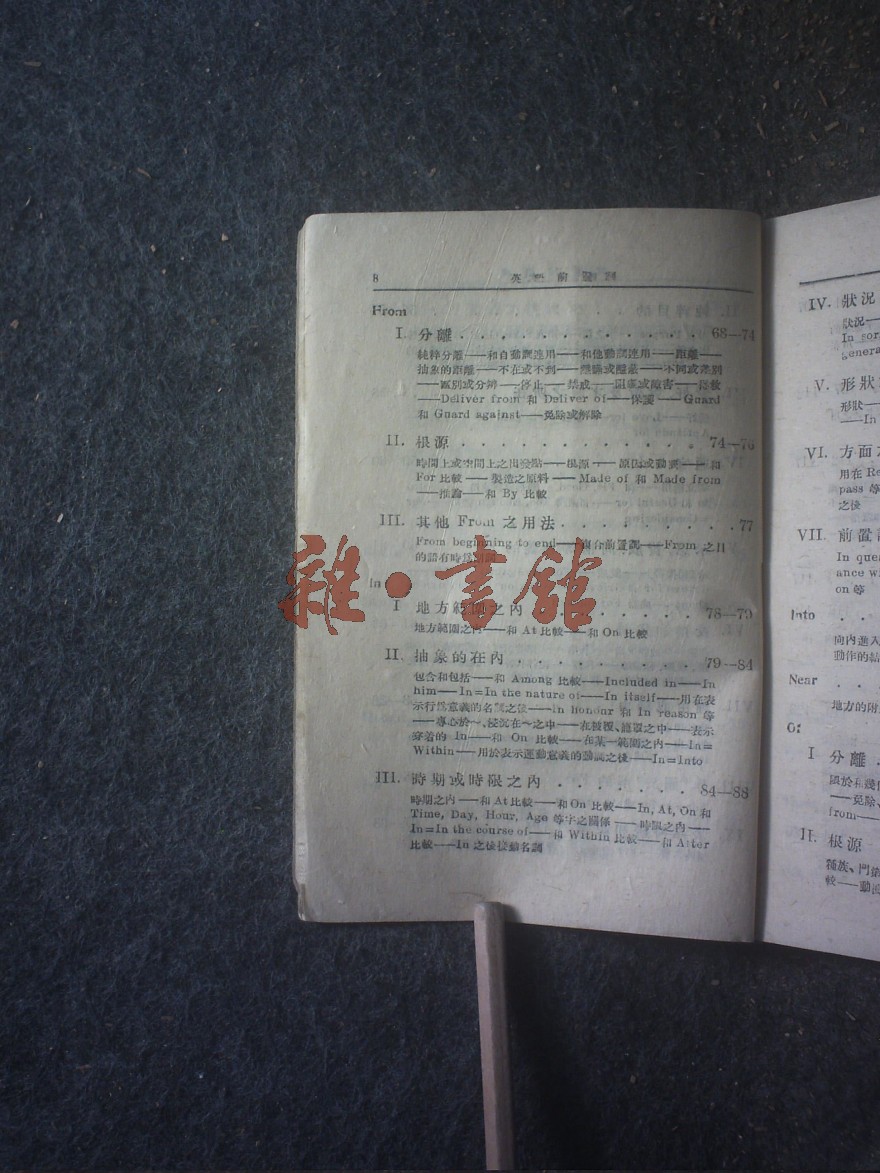 8 英語前置詞
From
I. 分離 . . . . . . . . . . . . . 68—74
純粹分離——和自動詞連用——和他動詞連用——距離——
抽象的距離——不在或不到——不同或差別
——區別或分辨——停止——禁或——阻礙或障害——
——Deliver from 和 Deliver of——保護——Guard
和 Guard against——免除或解除
II. 根源 . . . . . . . . . . . . . 74—76
時間上或空間上之出發點——根源——原因或動機——和
For 比較——製造之原料——Made of 和 Made from
——推論——和 By 比較
III. 其他 From 之用法 . . . . . . . . 77
From beginning to end——複合前置詞——From 之目
的語有時爲副詞
In
I 地方範圍之內 . . . . . . . 78—79
地方範圍之內——和 At 比較——和 On 比較
II. 抽象的在內 . . . . . . . . 79—84
包含和包括——和 Among 比較——Included in——In
him——In=In the nature of——In itself——用在表
示行爲意義的名詞之後——In honour 和 In reason 等
——專心於～、浸沉在～之中——在被覆、籠罩之中——表示
穿着的 In——和 On 比較——在某一範圍之內——In=
Within——用於表示運動意義的動詞之後——In=Into
III. 時期或時限之內 . . . . . . . 84—88
時期之內——和 At 比較——和 On 比較——In, At, On 和
Time, Day, Hour, Age 等字之關係——時限之內——
In=In the course of——和 Within 比較——和 After
比較——In 之後接動名詞
雜·書館
IV. 狀況
狀況——
In
genera
V. 形狀
形狀——
——In
VI. 方面
用在 Re
pass 等
之後
VII. 前置
In que
ance w
on 等
Into . .
向內進入
動作的結
Near . .
地方的附
Of
I 分離 .
——免除、
from——
II. 根源
種族、門
較——動